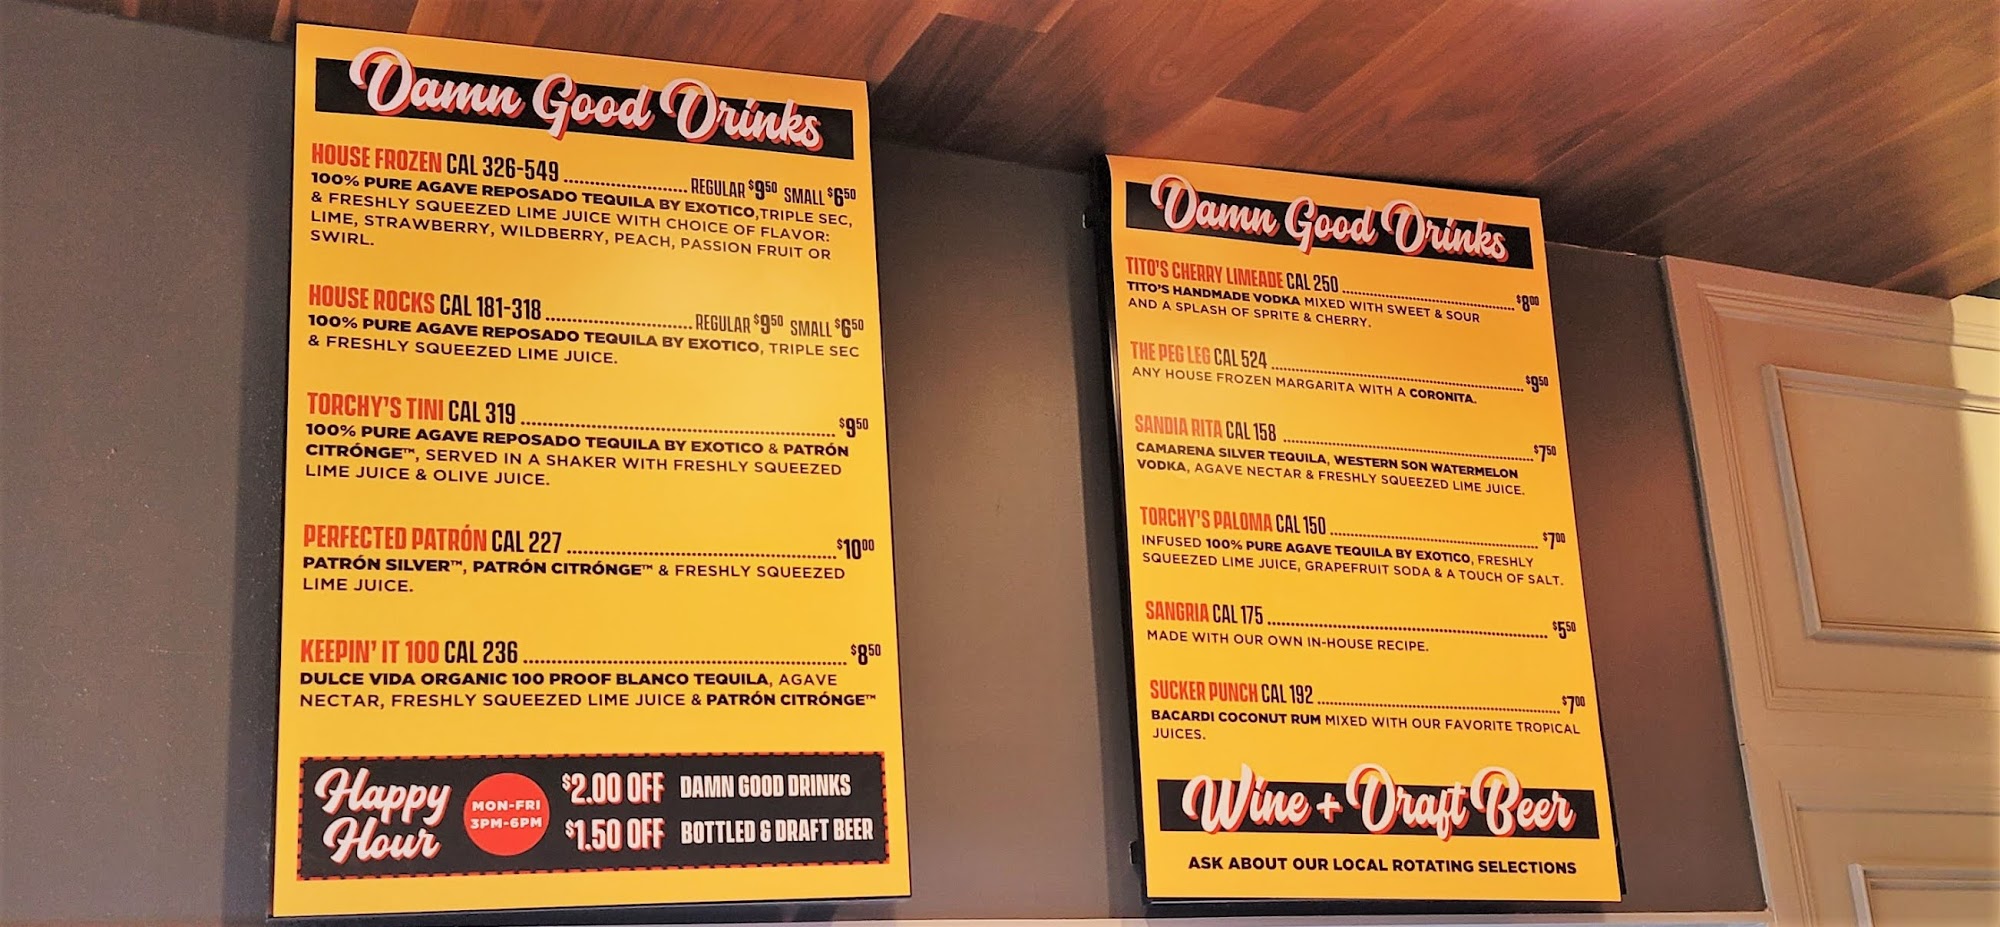 Damn Good Drinks
HOUSE FROZEN CAL 326-549 ........ REGULAR $9.50 SMALL $6.50
100% PURE AGAVE REPOSADO TEQUILA BY EXOTICO, TRIPLE SEC,
& FRESHLY SQUEEZED LIME JUICE WITH CHOICE OF FLAVOR:
LIME, STRAWBERRY, WILDBERRY, PEACH, PASSION FRUIT OR
SWIRL.
HOUSE ROCKS CAL 181-318 ........ REGULAR $9.50 SMALL $6.50
100% PURE AGAVE REPOSADO TEQUILA BY EXOTICO, TRIPLE SEC
& FRESHLY SQUEEZED LIME JUICE.
TORCHY'S TINI CAL 319 ........ $9.50
100% PURE AGAVE REPOSADO TEQUILA BY EXOTICO & PATRÓN
CITRÓNGE™, SERVED IN A SHAKER WITH FRESHLY SQUEEZED
LIME JUICE & OLIVE JUICE.
PERFECTED PATRÓN CAL 227 ........ $10.00
PATRÓN SILVER™, PATRÓN CITRÓNGE™ & FRESHLY SQUEEZED
LIME JUICE.
KEEPIN' IT 100 CAL 236 ........ $8.50
DULCE VIDA ORGANIC 100 PROOF BLANCO TEQUILA, AGAVE
NECTAR, FRESHLY SQUEEZED LIME JUICE & PATRÓN CITRÓNGE™
Happy
Hour
MON-FRI
3PM-6PM
$2.00 OFF DAMN GOOD DRINKS
$1.50 OFF BOTTLED & DRAFT BEER
Damn Good Drinks
TITO'S CHERRY LIMEADE CAL 250 ........ $8.00
TITO'S HANDMADE VODKA MIXED WITH SWEET & SOUR
AND A SPLASH OF SPRITE & CHERRY.
THE PEG LEG CAL 524 ........ $9.50
ANY HOUSE FROZEN MARGARITA WITH A CORONITA.
SANDIA RITA CAL 158 ........ $7.50
CAMARENA SILVER TEQUILA, WESTERN SON WATERMELON
VODKA, AGAVE NECTAR & FRESHLY SQUEEZED LIME JUICE.
TORCHY'S PALOMA CAL 150 ........ $7.00
INFUSED 100% PURE AGAVE TEQUILA BY EXOTICO, FRESHLY
SQUEEZED LIME JUICE, GRAPEFRUIT SODA & A TOUCH OF SALT.
SANGRIA CAL 175 ........ $5.50
MADE WITH OUR OWN IN-HOUSE RECIPE.
SUCKER PUNCH CAL 192 ........ $7.00
BACARDI COCONUT RUM MIXED WITH OUR FAVORITE TROPICAL
JUICES.
Wine + Draft Beer
ASK ABOUT OUR LOCAL ROTATING SELECTIONS